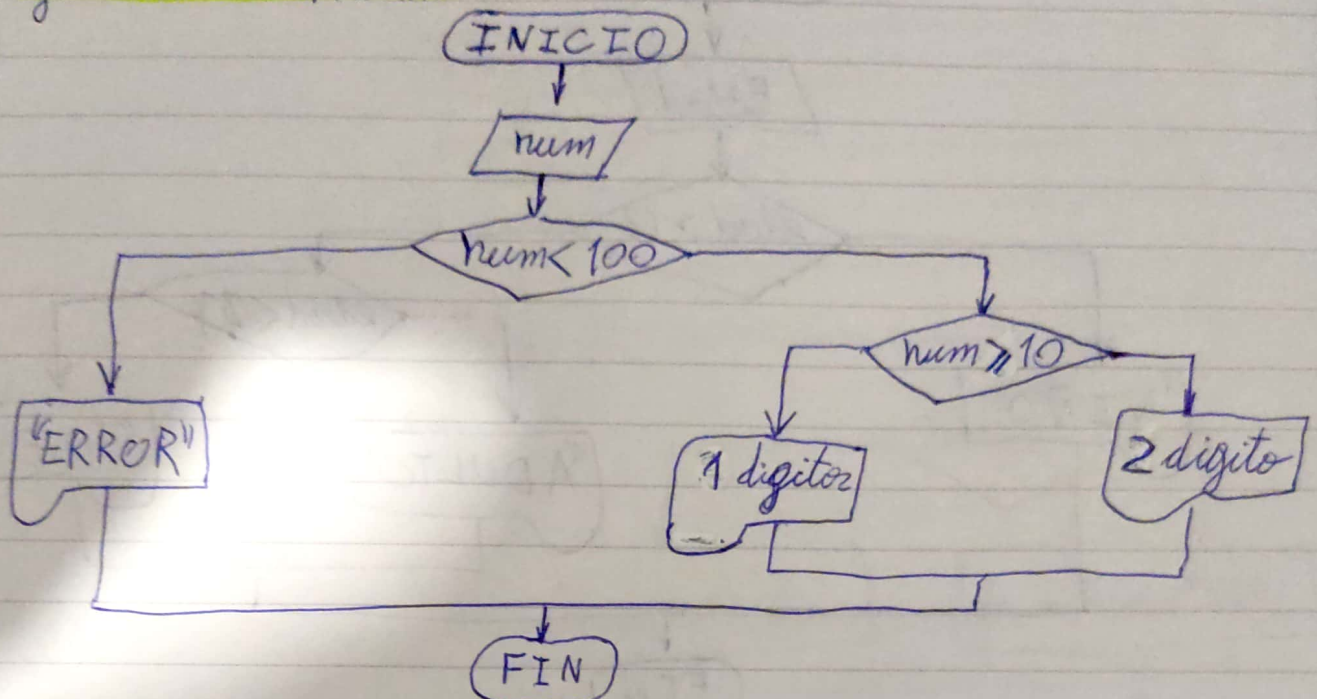 INICIO
num
num< 100
num ≥ 10
"ERROR"
1 digitos
2 digito
FIN